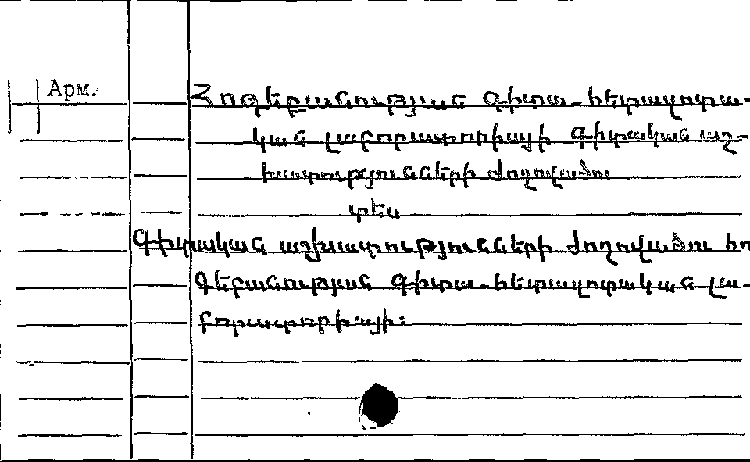 Арм.
Հոգեբանության գիտա-հետազոտա-
կան լաբորատորիայի գիտական աշ-
խատությունների ժողովածու
տես
Գիտական աշխատությունների ժողովածու հո
գեբանության գիտա-հետազոտական լա-
բորատորիայի: